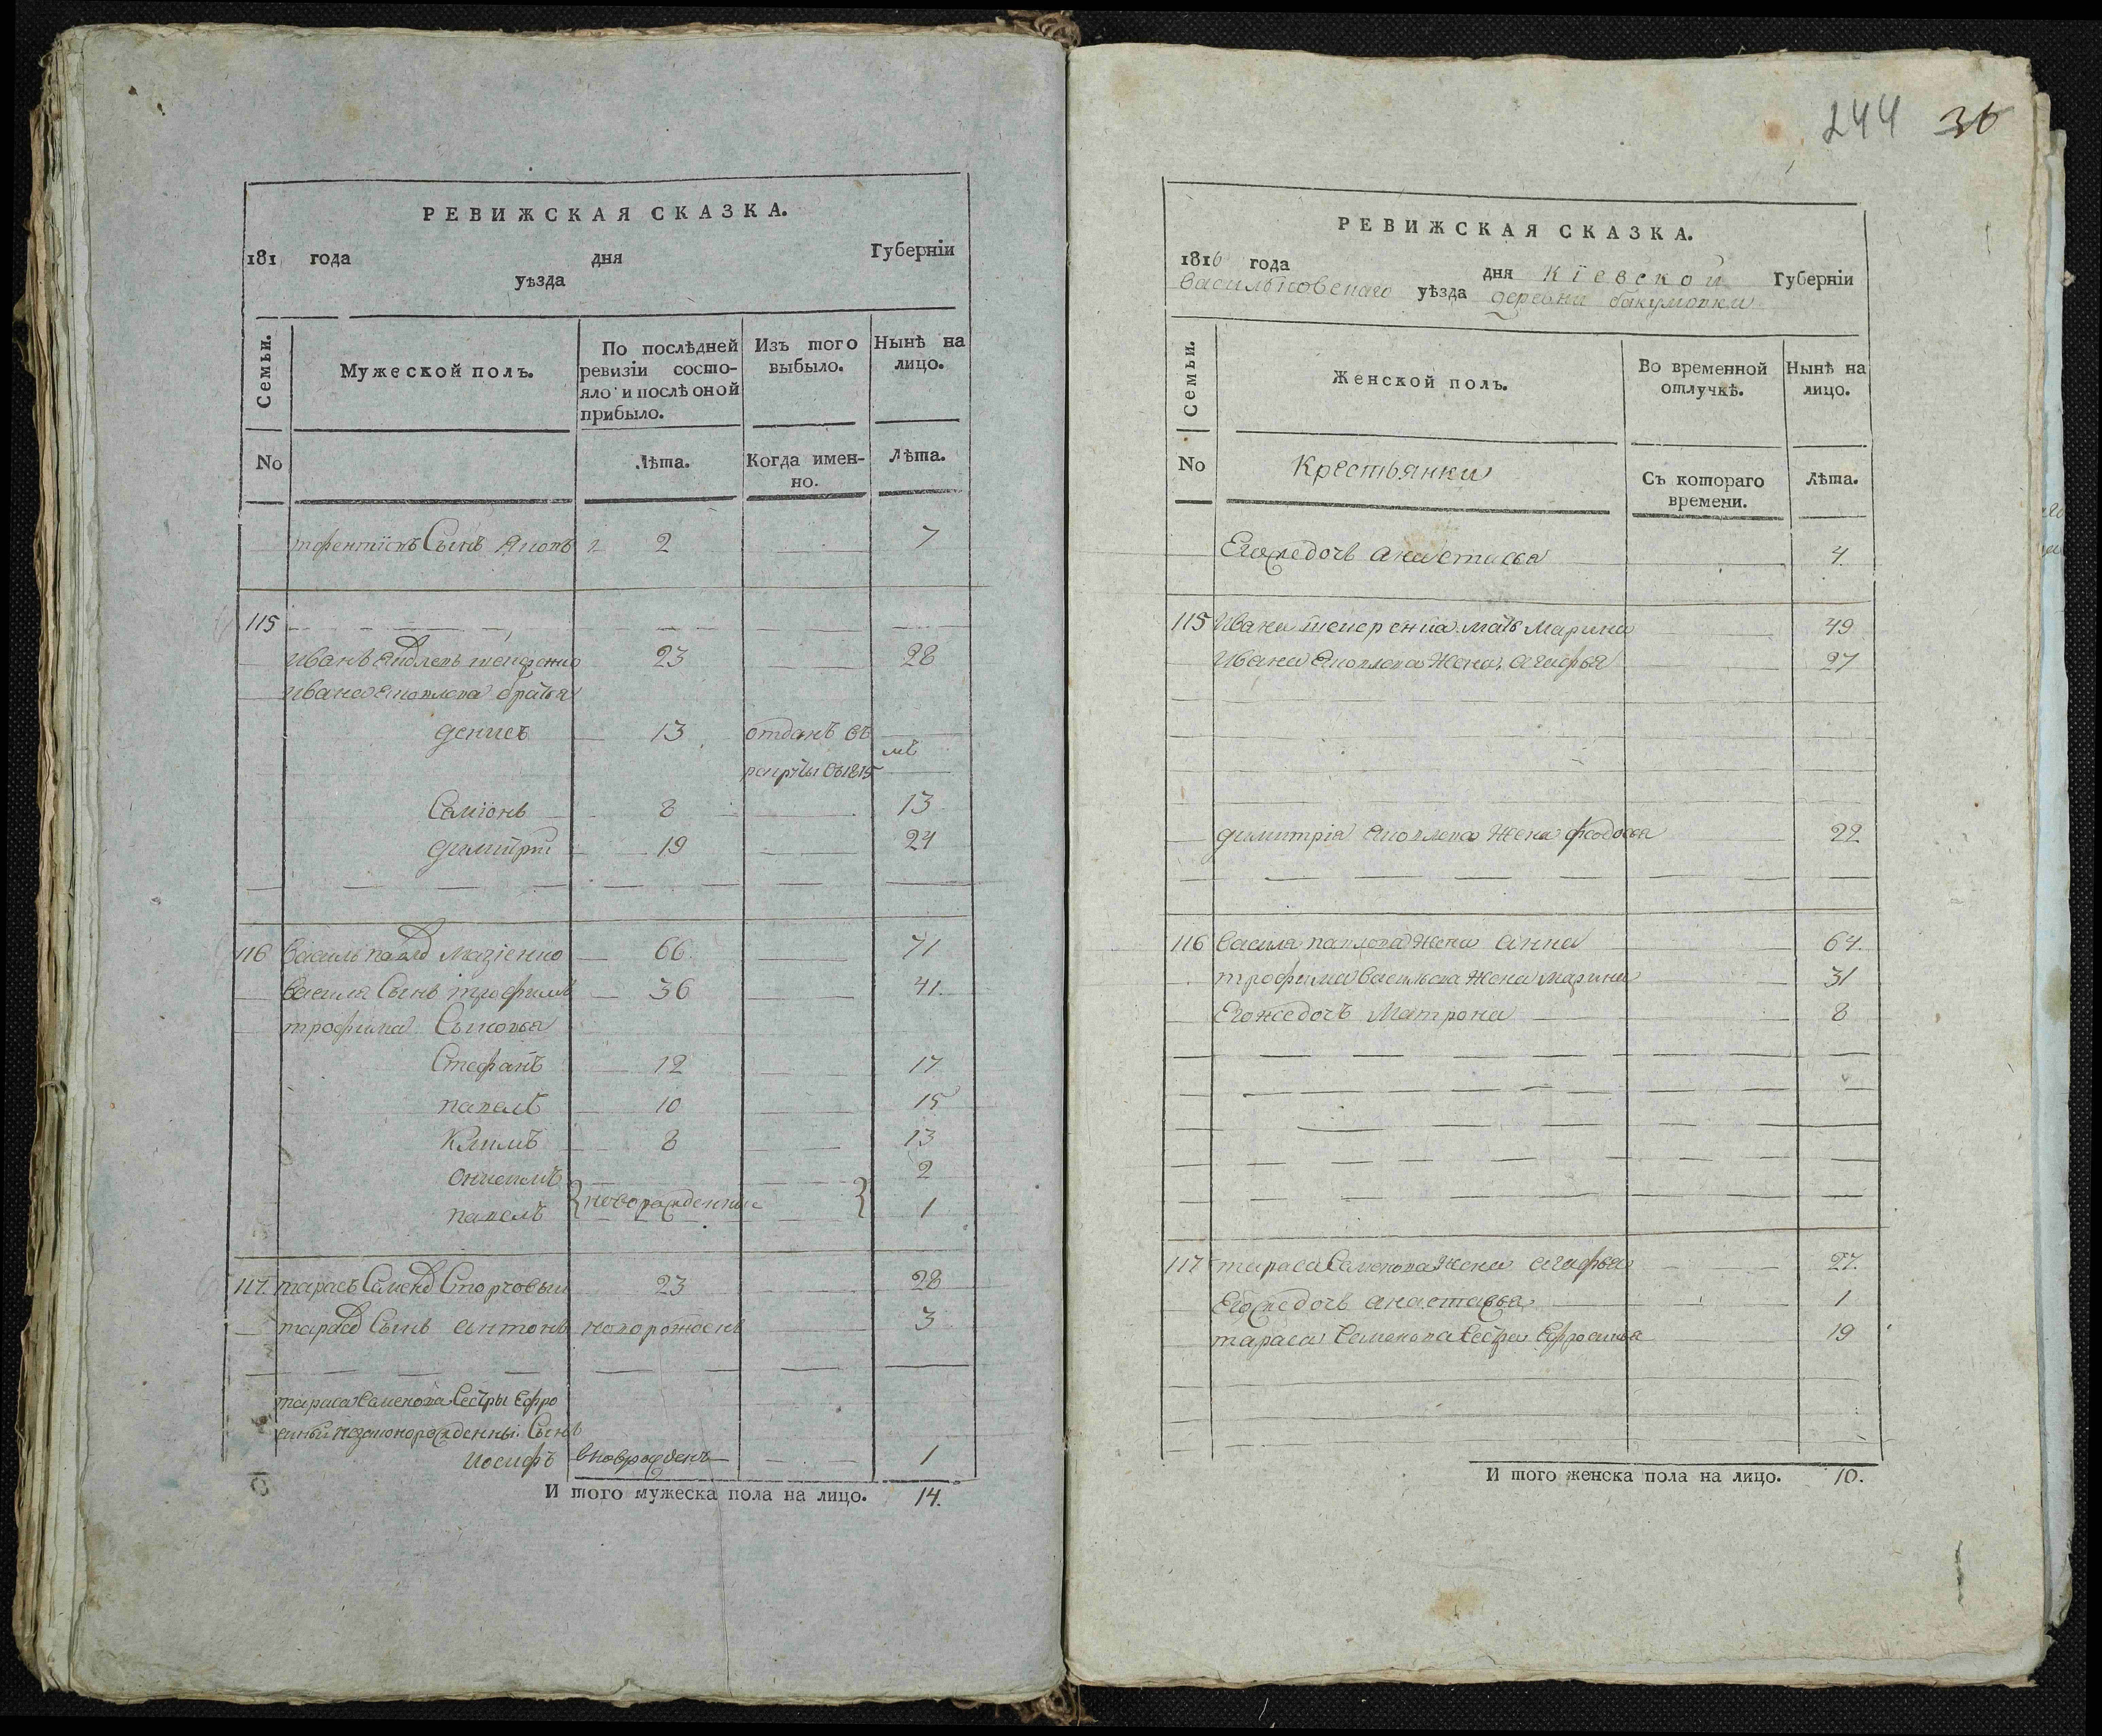 РЕВИЖСКАЯ СКАЗКА.
181 года дня Губернїи
уѣзда
Семьи.
Мужеской полъ.
По послѣдней ревизїи состо-
яло и послѣ оной
прибыло.
Изъ того
выбыло.
Нынѣ на
лицо.
No
Лѣта.
Когда имен-
но.
Лѣта.
Сынъ 2 7
115
Иванъ 23 28
Ивана братья
Денисъ 13 отданъ въ
рекруты въ 1815мъ
Семіонъ 8 13
Димитрій 19 24
116 Василь Мазіенко 66 71
Василя Сынъ трофимъ 36 41
трофима Сыновья
Стефанъ 12 17
павелъ 10 15
Климъ 8 13
2
павелъ новорожденные 1
117 тарасъ 23 28
Сынъ антонъ новорожденъ 3
тараса Семенова Сестры Ефро
сыньи незаконорожденный Сынъ
Иосифъ вновьрожденъ 1
И того мужеска пола на лицо. 14.
244 36
РЕВИЖСКАЯ СКАЗКА.
1816 года дня Кїевской Губернїи
Васильковскаго уѣзда деревни
Семьи.
Женской полъ.
Во временной
отлучкѣ.
Нынѣ на
лицо.
No
Крестьянки
Съ котораго
времени.
Лѣта.
Егожедочь анастасья 4.
115 Ивана мать Марина 49
Ивана Жена агафья 27
димитрія Жена феодосья 22
116 Василя павлова Жена анна 64.
трофима Васильева Жена Марина 31
Егожедочь Матрона 8
117 тараса Семенова Жена агафья 27.
Егожедочь анастасья 1
тараса Семенова Сестра Ефросинья 19
И того женска пола на лицо. 10.